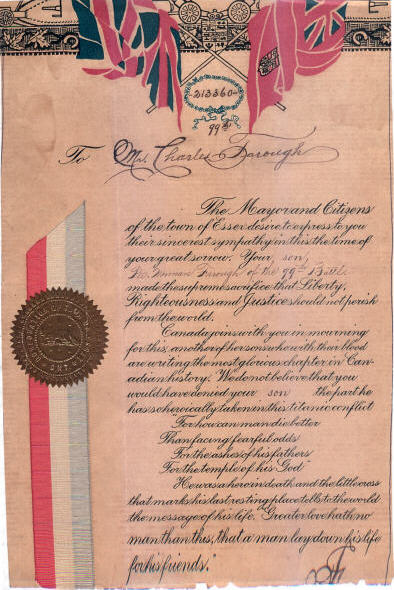 213360
99th
To Mr. Charles Forough
The Mayor and Citizens
of the town of Essex desire to express to you
their sincerest sympathy in this the time of
your great sorrow. Your son,
Pte. Norman Forough of the 99th Battl.
made the supreme sacrifice that Liberty,
Righteousness and Justice should not perish
from the world.
Canada joins with you in mourning
for this, another of her sons who with their blood
are writing the most glorious chapter in Can-
adian history. We do not believe that you
would have denied your son the part he
has so heroically taken in this titanic conflict
"For how can man die better
Than facing fearful odds
For the ashes of his fathers
For the temple of his God"
He was a hero in death and the little cross
that marks his last resting place tells to the world
the message of his life. "Greater love hath no
man than this, that a man lay down his life
for his friends."
ONT